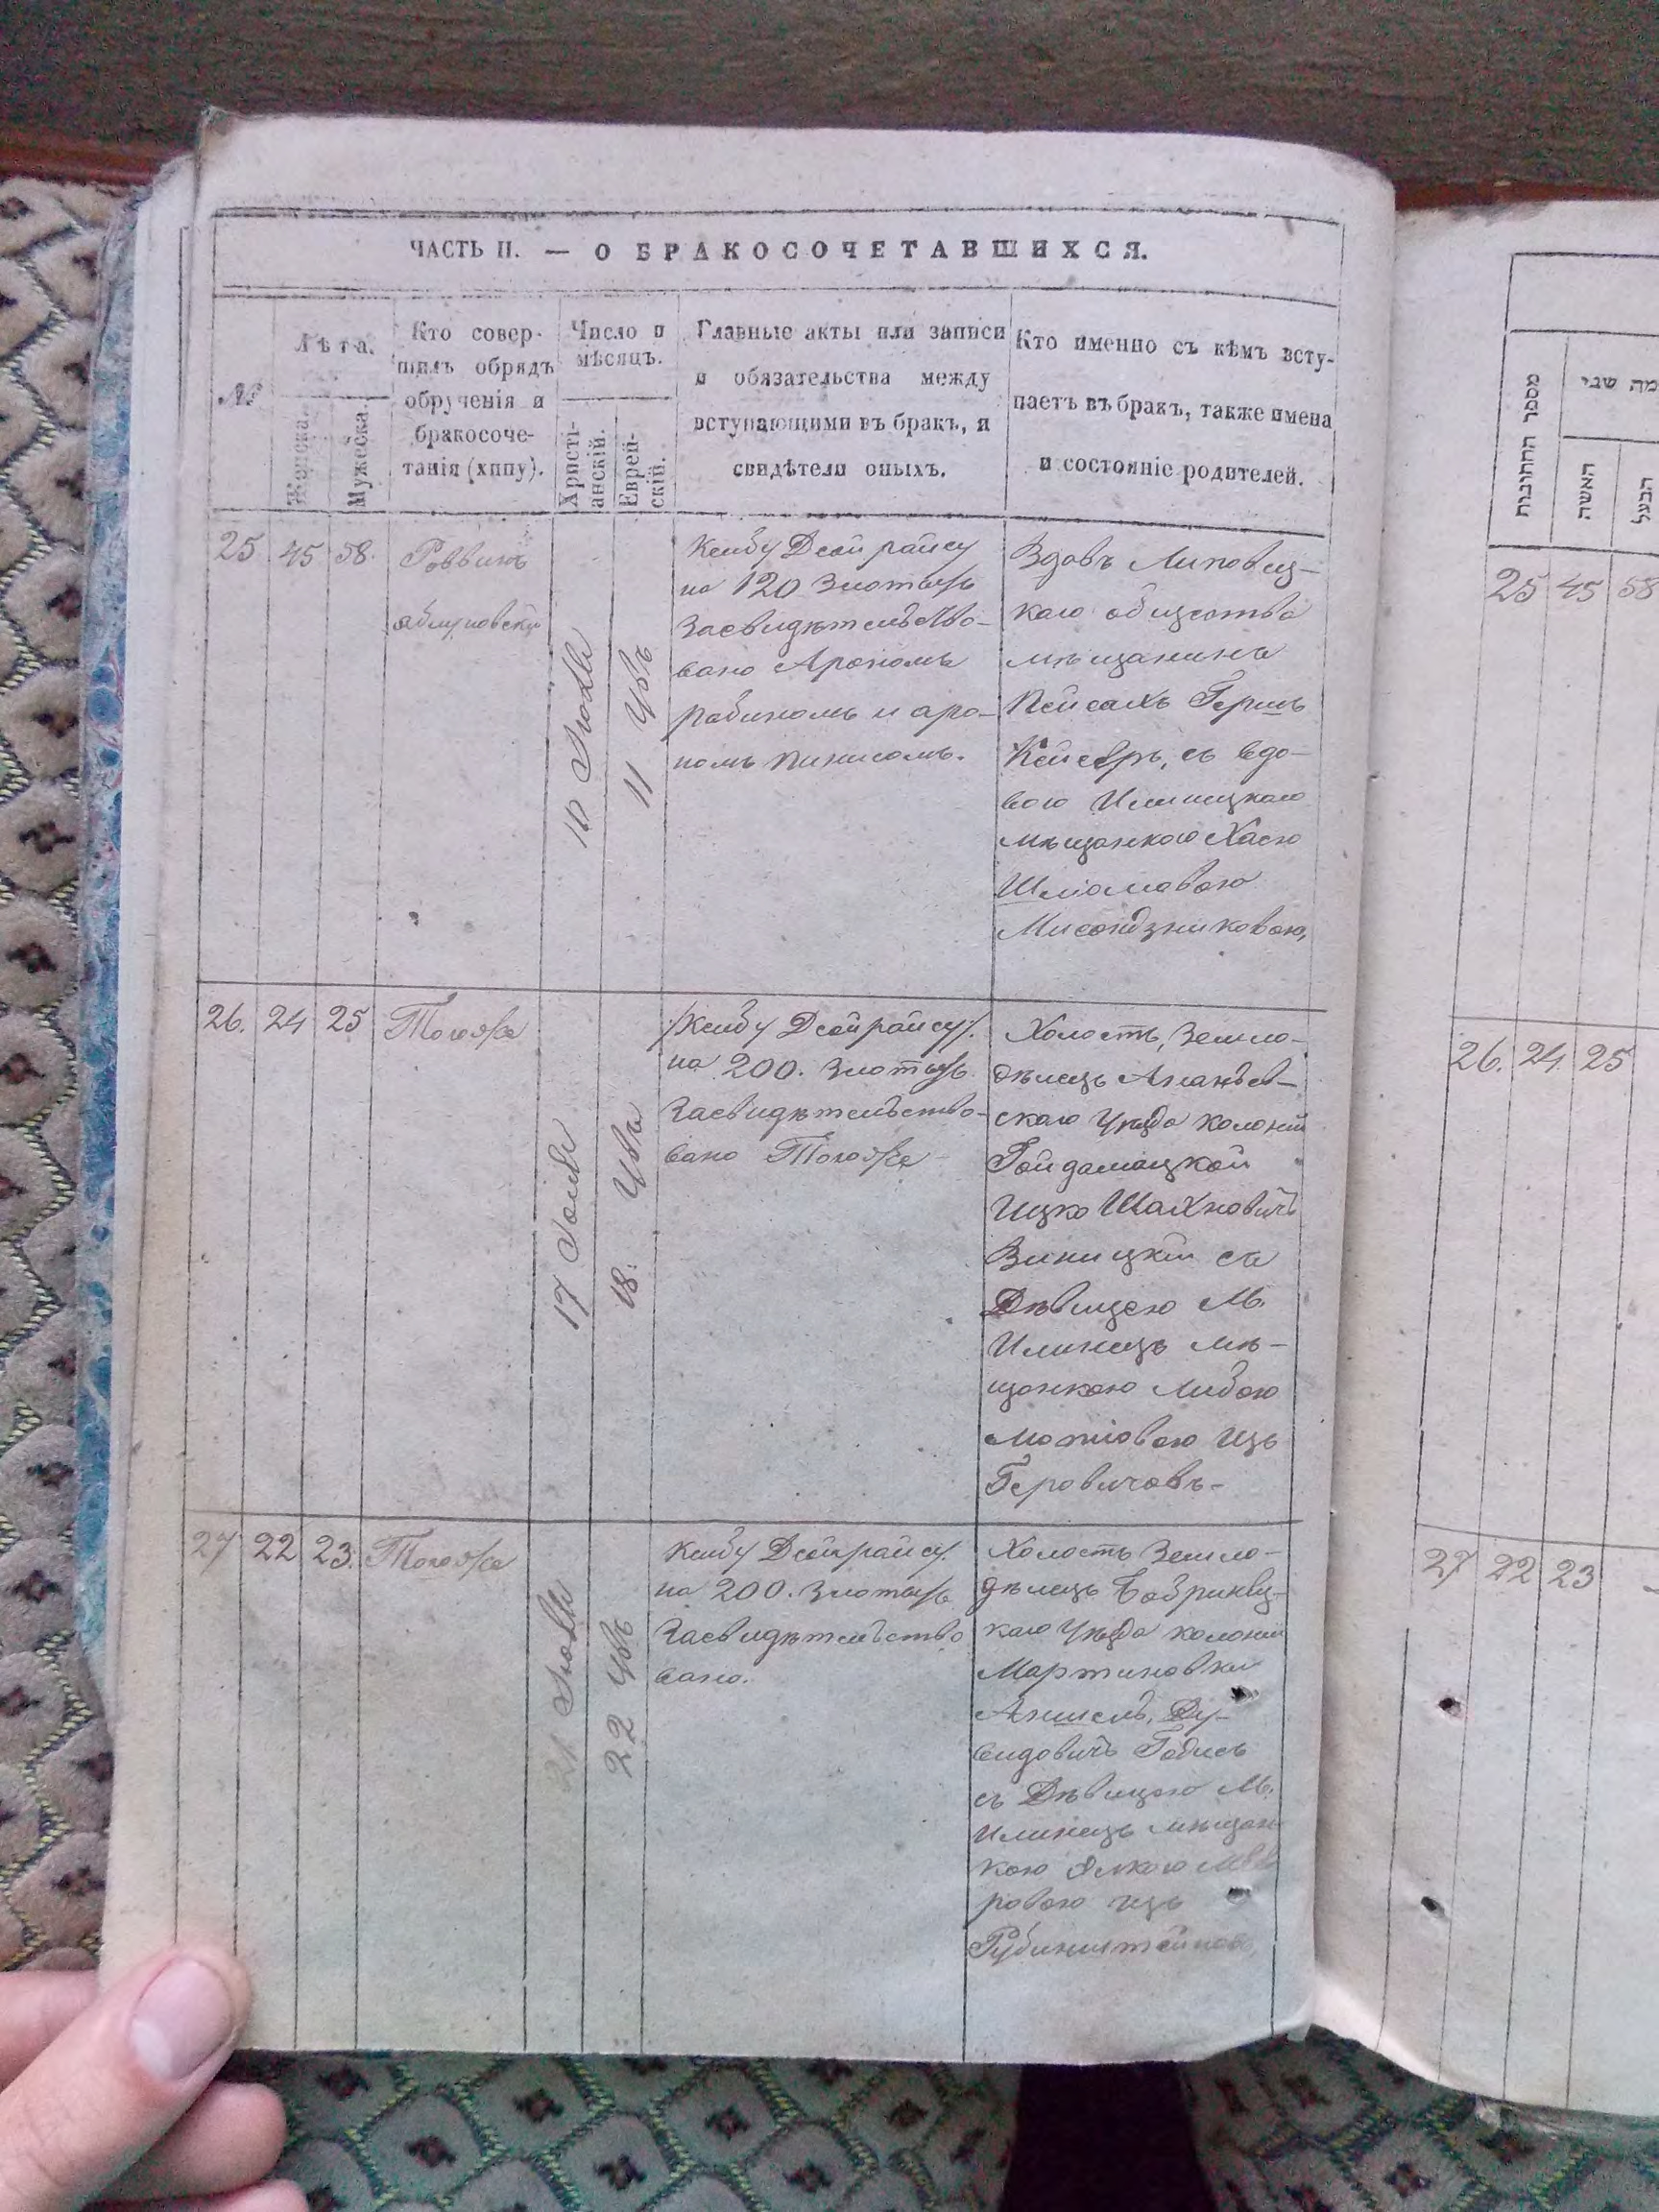 ЧАСТЬ II. — О БРАКОСОЧЕТАВШИХСЯ.
№
Лѣта.
Женска.
Мужеска.
Кто совер-
шилъ обрядъ
обрученія и
бракосоче-
танія (хипу).
Число и
мѣсяцъ.
Христі-
анскій.
Еврей-
скій.
Главные акты или записи
и обязательства между
вступающими въ бракъ, и
свидѣтели оныхъ.
Кто именно съ кѣмъ всту-
паетъ въ бракъ, также имена
и состояніе родителей.
25
45
58.
Роввинъ
10
11
Ксибу Дсой райсу
на 120 Злотыхъ
Засвидѣтельство-
вано Арономъ
рабиномъ и аро-
номъ
Вдовъ Липовец-
каго общества
мѣщанинъ
Пейсахъ Гершъ
Кейсеръ, съ вдо-
вою Илинецкаго
мѣщанкаю Хасю
Шліомовою
26.
24
25
Тотоже
17
18.
Ксибу Дсойрайсу
на 200. Злотыхъ
Засвидѣтельство-
вано Тотоже
Холостъ, Земло-
дѣлецъ Ананьев-
скаго Уѣзда колоніи
Гойдамацкой
Ицко Шахновичъ
Виницкій съ
Дѣвицею М.
Илинецъ мѣ-
щанкою Либою
Мотіовою изъ
Геровичовъ-
27
22
23.
Тотоже
21
22
Ксибу Дсойрайсу.
на 200. Злотыхъ
Засвидѣтельство
вано.
Холостъ Земло-
дѣлецъ
каго Уѣзда колоніи
Мартиновки
Аншель, Ду-
видовичъ
съ Дѣвицею М.
Илинецъ мѣщан
кою
ровою изъ
מספר החתונות
מה שני
האשה
הבעל
25 45 58
26. 24 25
27 22 23